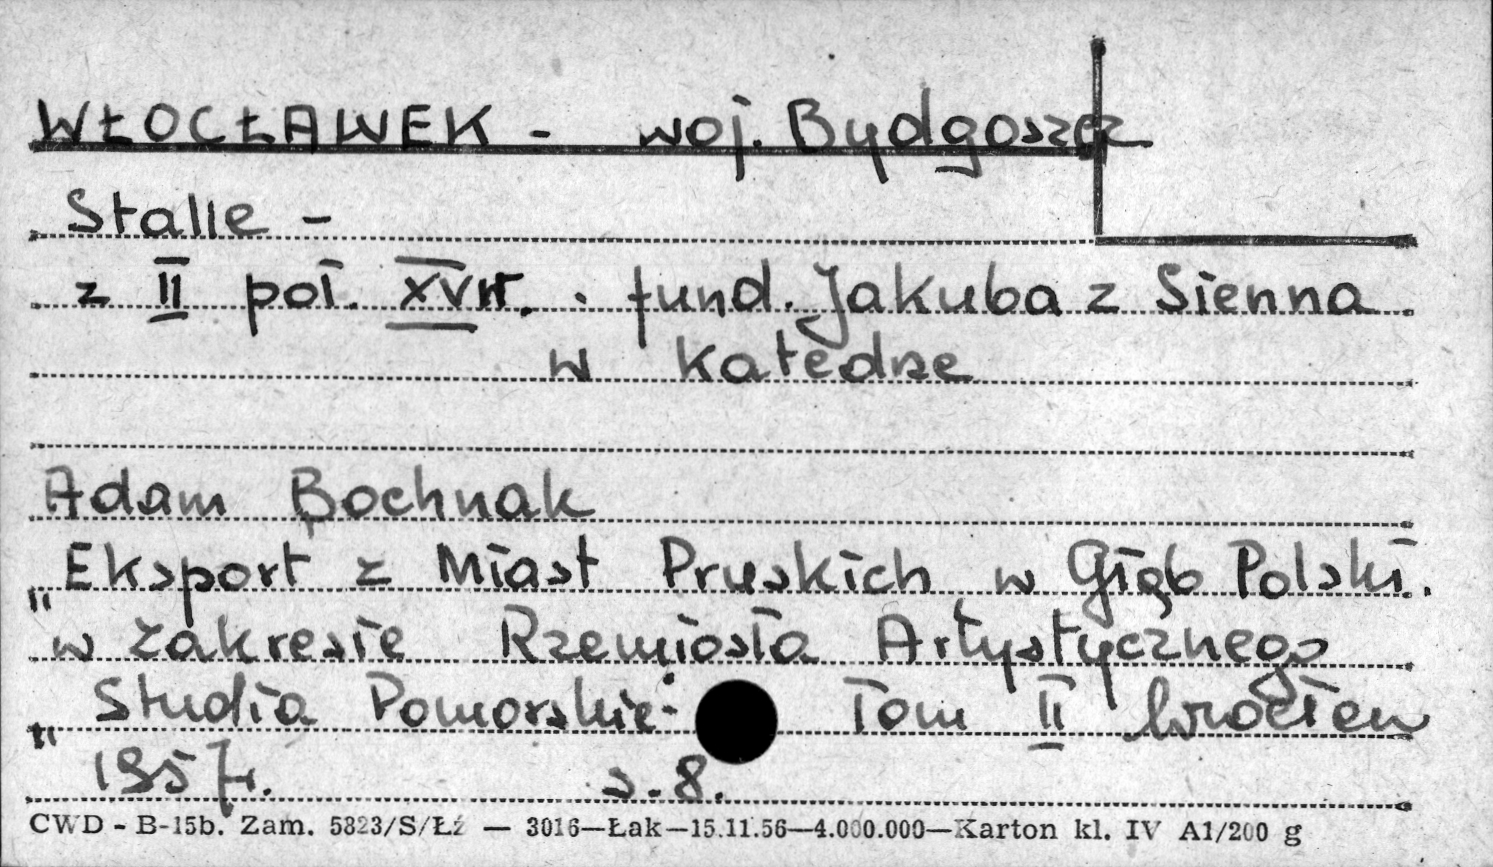 WŁOCŁAWEK - woj. Bydgoszcz
Stalle -
z II poł. XV w. fund. Jakuba z Sienna
w Katedrze
Adam Bochnak
"Eksport z Miast Pruskich w Głąb Polski.
w zakresie Rzemiosła Artystycznego
"Studia Pomorskie- Tom II
1957r. s. 8.
CWD - B-15b. Zam. 5823/S/Łź — 3016—Łak—15.11.56—4.000.000—Karton kl. IV A1/200 g